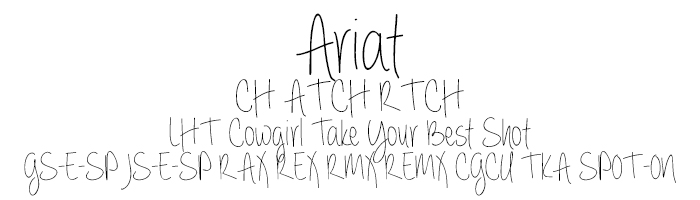 Ariat
CH ATCH R TCH
LHT Cowgirl Take Your Best Shot
GS-E-SP JS-E-SP RAX REX RMX REMX CGCU TKA SPOT-ON